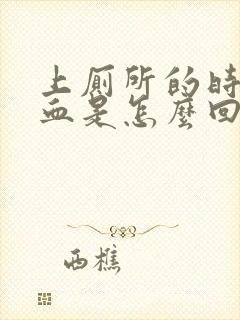 上厕所的时
血是怎麼回
西樵